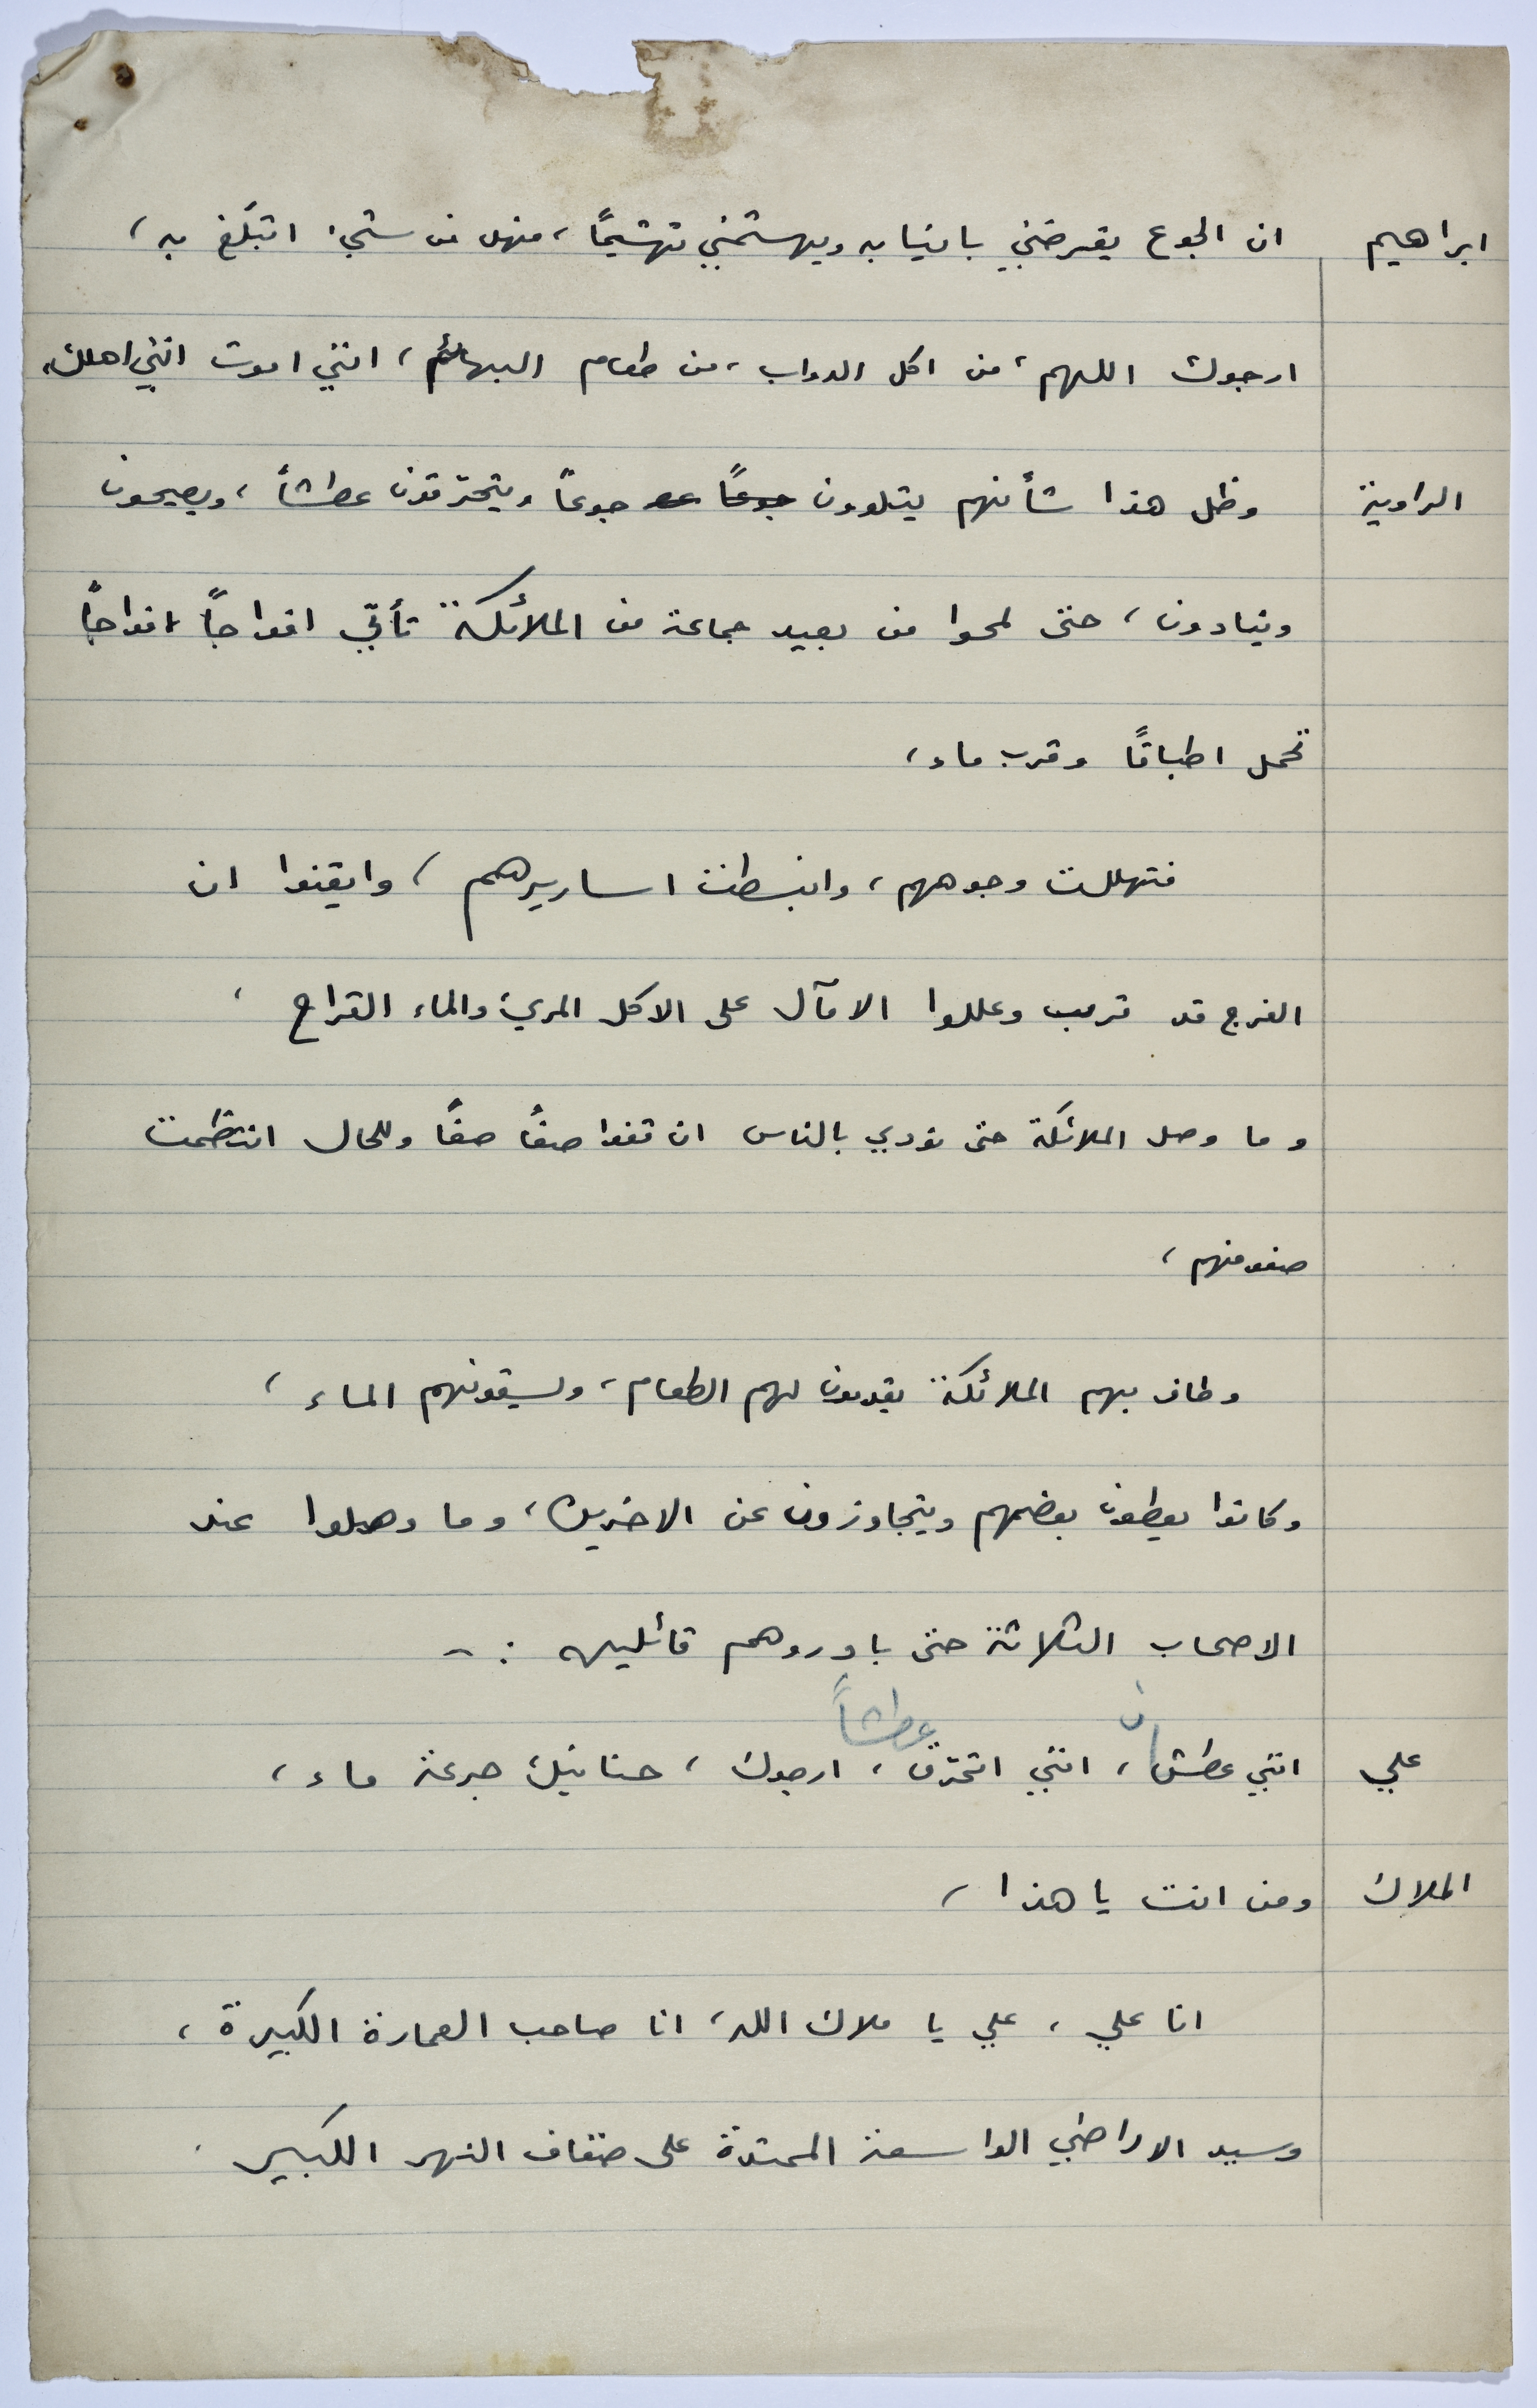 ابراهيم ان الجوع يقرضني بانيابه ويهشمني تهشيماً، فهل من شيء اتبلّغ به،
ارجوك اللهم، من اكل الدواب، من طعام البهائم، انني اموت انني اهلك،
الراوية وظل هذا شأنهم يتلوون جوعاً عص جوعاً ويتحرّقون عطشاً، ويصيحون
وينادون، حتى لمحوا من بعيد جماعة من الملائكة تأتي افواجاً افواجاً
تحمل اطباقاً وقرب ماء،
فتهللت وجوههم، وانبسطت اساريرهم، وايقنوا ان
الفرج قد قرب وعللوا الآمال على الاكل المريء والماء القراح،
وما وصل الملائكة حتى نودي بالناس ان قفوا صفاً صفاً وللحال انتظمت
صفوفهم،
وطاف بهم الملائكة يقدمون لهم الطعام، ويسقونهم الماء،
وكانوا يعطون بعضهم ويتجاوزون عن الاخرين، وما وصلوا عند
الاصحاب الثلاثة حتى بادروهم قائلين :-
عطشاً
علي انني عطشان، انني اتحرّق، ارجوك، حنانيك جرعة ماء،
الملاك ومن انت يا هذا،
انا علي، علي يا ملاك الله، انا صاحب العمارة الكبيرة،
وسيد الاراضي الواسعة الممتدة على ضفاف النهر الكبير.